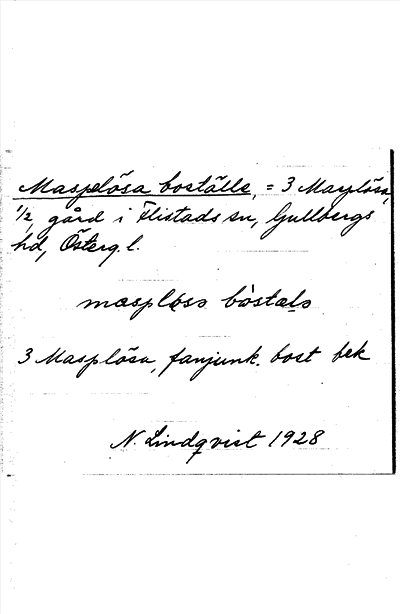 Masplösa boställe, = 3 Masplösa,
1/2, gård i Flistads sn, Gullbergs
hd, Österg. l.
masplɩsɔ bòstalɔ
3 Masplösa, fanjunk. bost bek
N. Lindqvist 1928